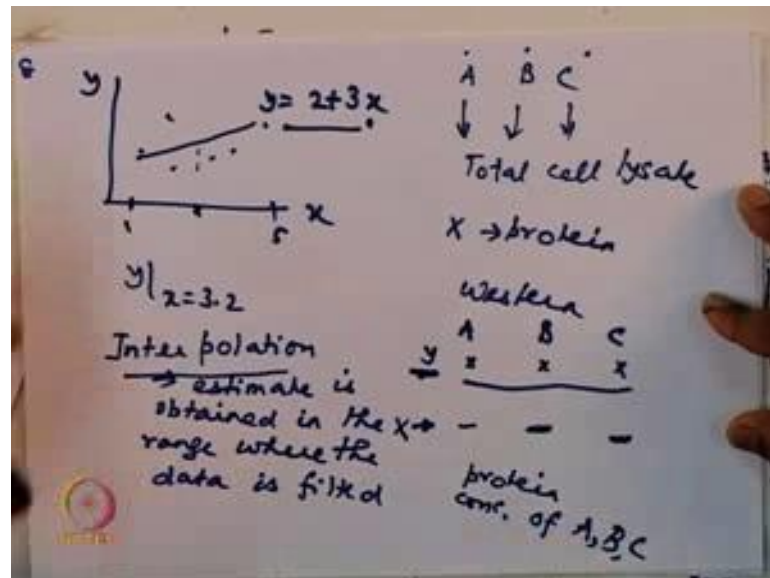 y
y = 2+3x
1
5
x
y|x=3.2
Interpolation
→ estimate is
obtained in the
range where the
data is fitted
A B C
↓ ↓ ↓
Total cell lysate
X → protein
Western
A B C
y x x x
X → - - -
protein
conc. of A, B, C